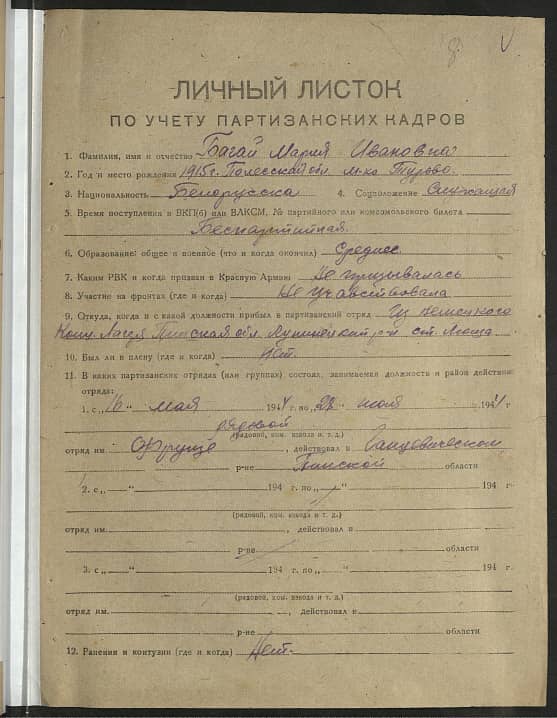 ЛИЧНЫЙ ЛИСТОК
ПО УЧЕТУ ПАРТИЗАНСКИХ КАДРОВ
1. Фамилия, имя и отчество Багай Мария Ивановна
2. Год и место рождения 1915 г. Полесской обл. м-ко Турово
3. Национальность Белорусска 4. Соцположение Служащая
5. Время поступления в ВКП(б) или ВЛКСМ, № партийного или комсомольского билета
Беспартийная.
6. Образование: общее и военное (что и когда окончил) Среднее
7. Каким РВК и когда призван в Красную Армию Не призывалась
8. Участие на фронтах (где и когда) Не участвовала
9. Откуда, когда и с какой должности прибыл в партизанский отряд Из немецкого
Конц. Лагеря Пинская обл. Лунинецкий р-н ст. Люща
10. Был ли в плену (где и когда) Нет.
11. В каких партизанских отрядах (или группах) состоял, занимаемая должность и район действий
отряда:
1. с „16" мая 1944 г. по „28" июля 1944 г.
рядовой
(рядовой, ком. взвода и т. д.)
отряд им Фрунзе, действовал в Ганцевическом
р-не Пинской области
2. с „ " 194 г. по „ " 194 г.
(рядовой, ком. взвода и т. д.)
отряд им. , действовал в
р-не области
3. с „ " 194 г. по „ " 194 г.
(рядовой, ком. взвода и т. д.)
отряд им. , действовал в
р-не области
12. Ранения и контузии (где и когда) Нет.